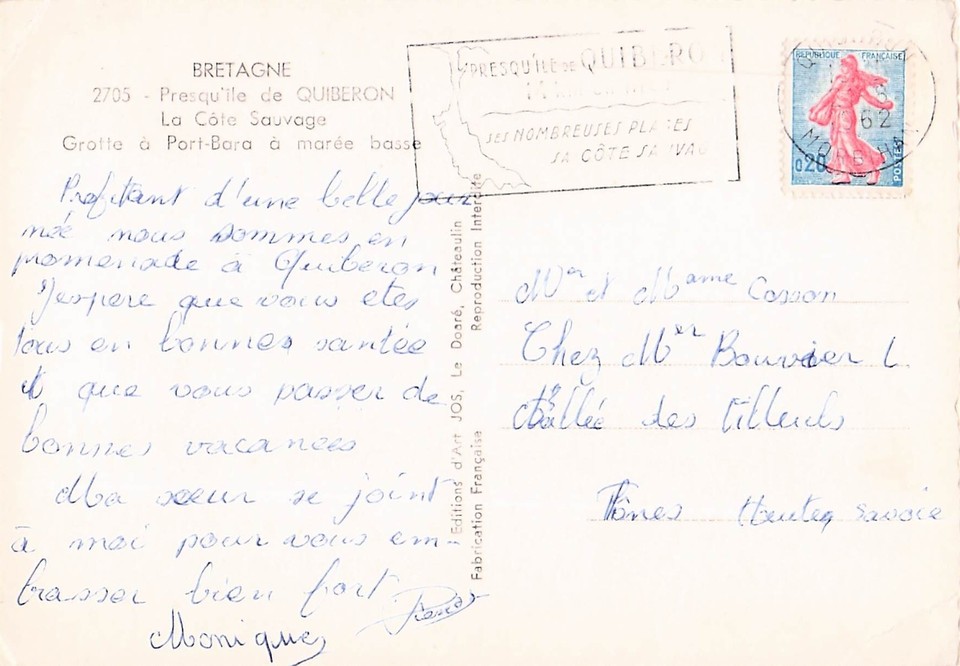 BRETAGNE
2705 - Presqu'île de QUIBERON
La Côte Sauvage
Grotte à Port-Bara à marée basse
PRESQU'ÎLE DE QUIBERON
SES NOMBREUSES PLAGES
SA CÔTE SAUVAGE
REPUBLIQUE FRANÇAISE
0,20
POSTES
1962
MORBIHAN
Profitant d'une belle jour
née nous sommes en
promenade à Quiberon
J'espere que vous etes
tous en bonnes santée
et que vous passer de
bonnes vacances
Ma sœur se joint
à moi pour vous em-
brasser bien fort
Monique
Editions d'Art JOS, Le Doaré, Châteaulin
Fabrication Française Reproduction Interdite
Mr et Mame Cosson
Chez Mer Bouvier L
Allée des Tilleuls
Thônes Hautes Savoie